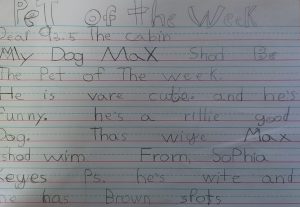 PeT of The Week
Dear 93.5 The Cabin
My Dog Max Shod Be
The Pet of The week.
He is vare cute. and he's
Funny. he's a rillie good
Dog. Thas wiye Max
shod wim. From, SoPhia
Keyes Ps. he's wite and
he has Brown spots